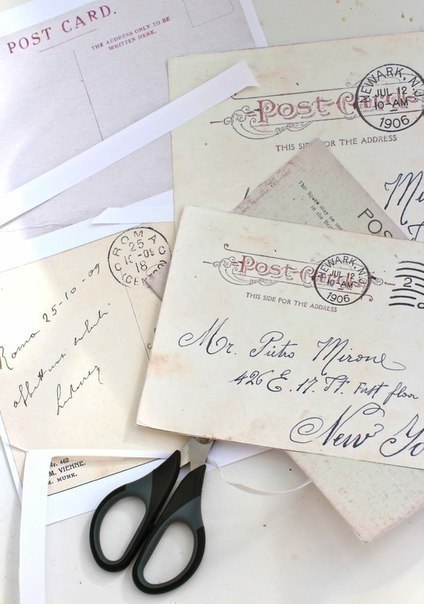 POST CARD.
THE ADDRESS ONLY TO BE
WRITTEN HERE.
Post Cards
NEWARK, N.J.
JUL 12
10-AM
1906
THIS SIDE FOR THE ADDRESS
POS
ROMA
25
10-09
18
(CENTRO)
Roma 25-10-09
Post Cards
NEWARK, N.J.
JUL 12
10-AM
1906
2
THIS SIDE FOR THE ADDRESS
Mr. Pietro Mirone
426 E. 17. St. First floor
New Yo
No. 462
M. VIENNE.
M. MUNK.